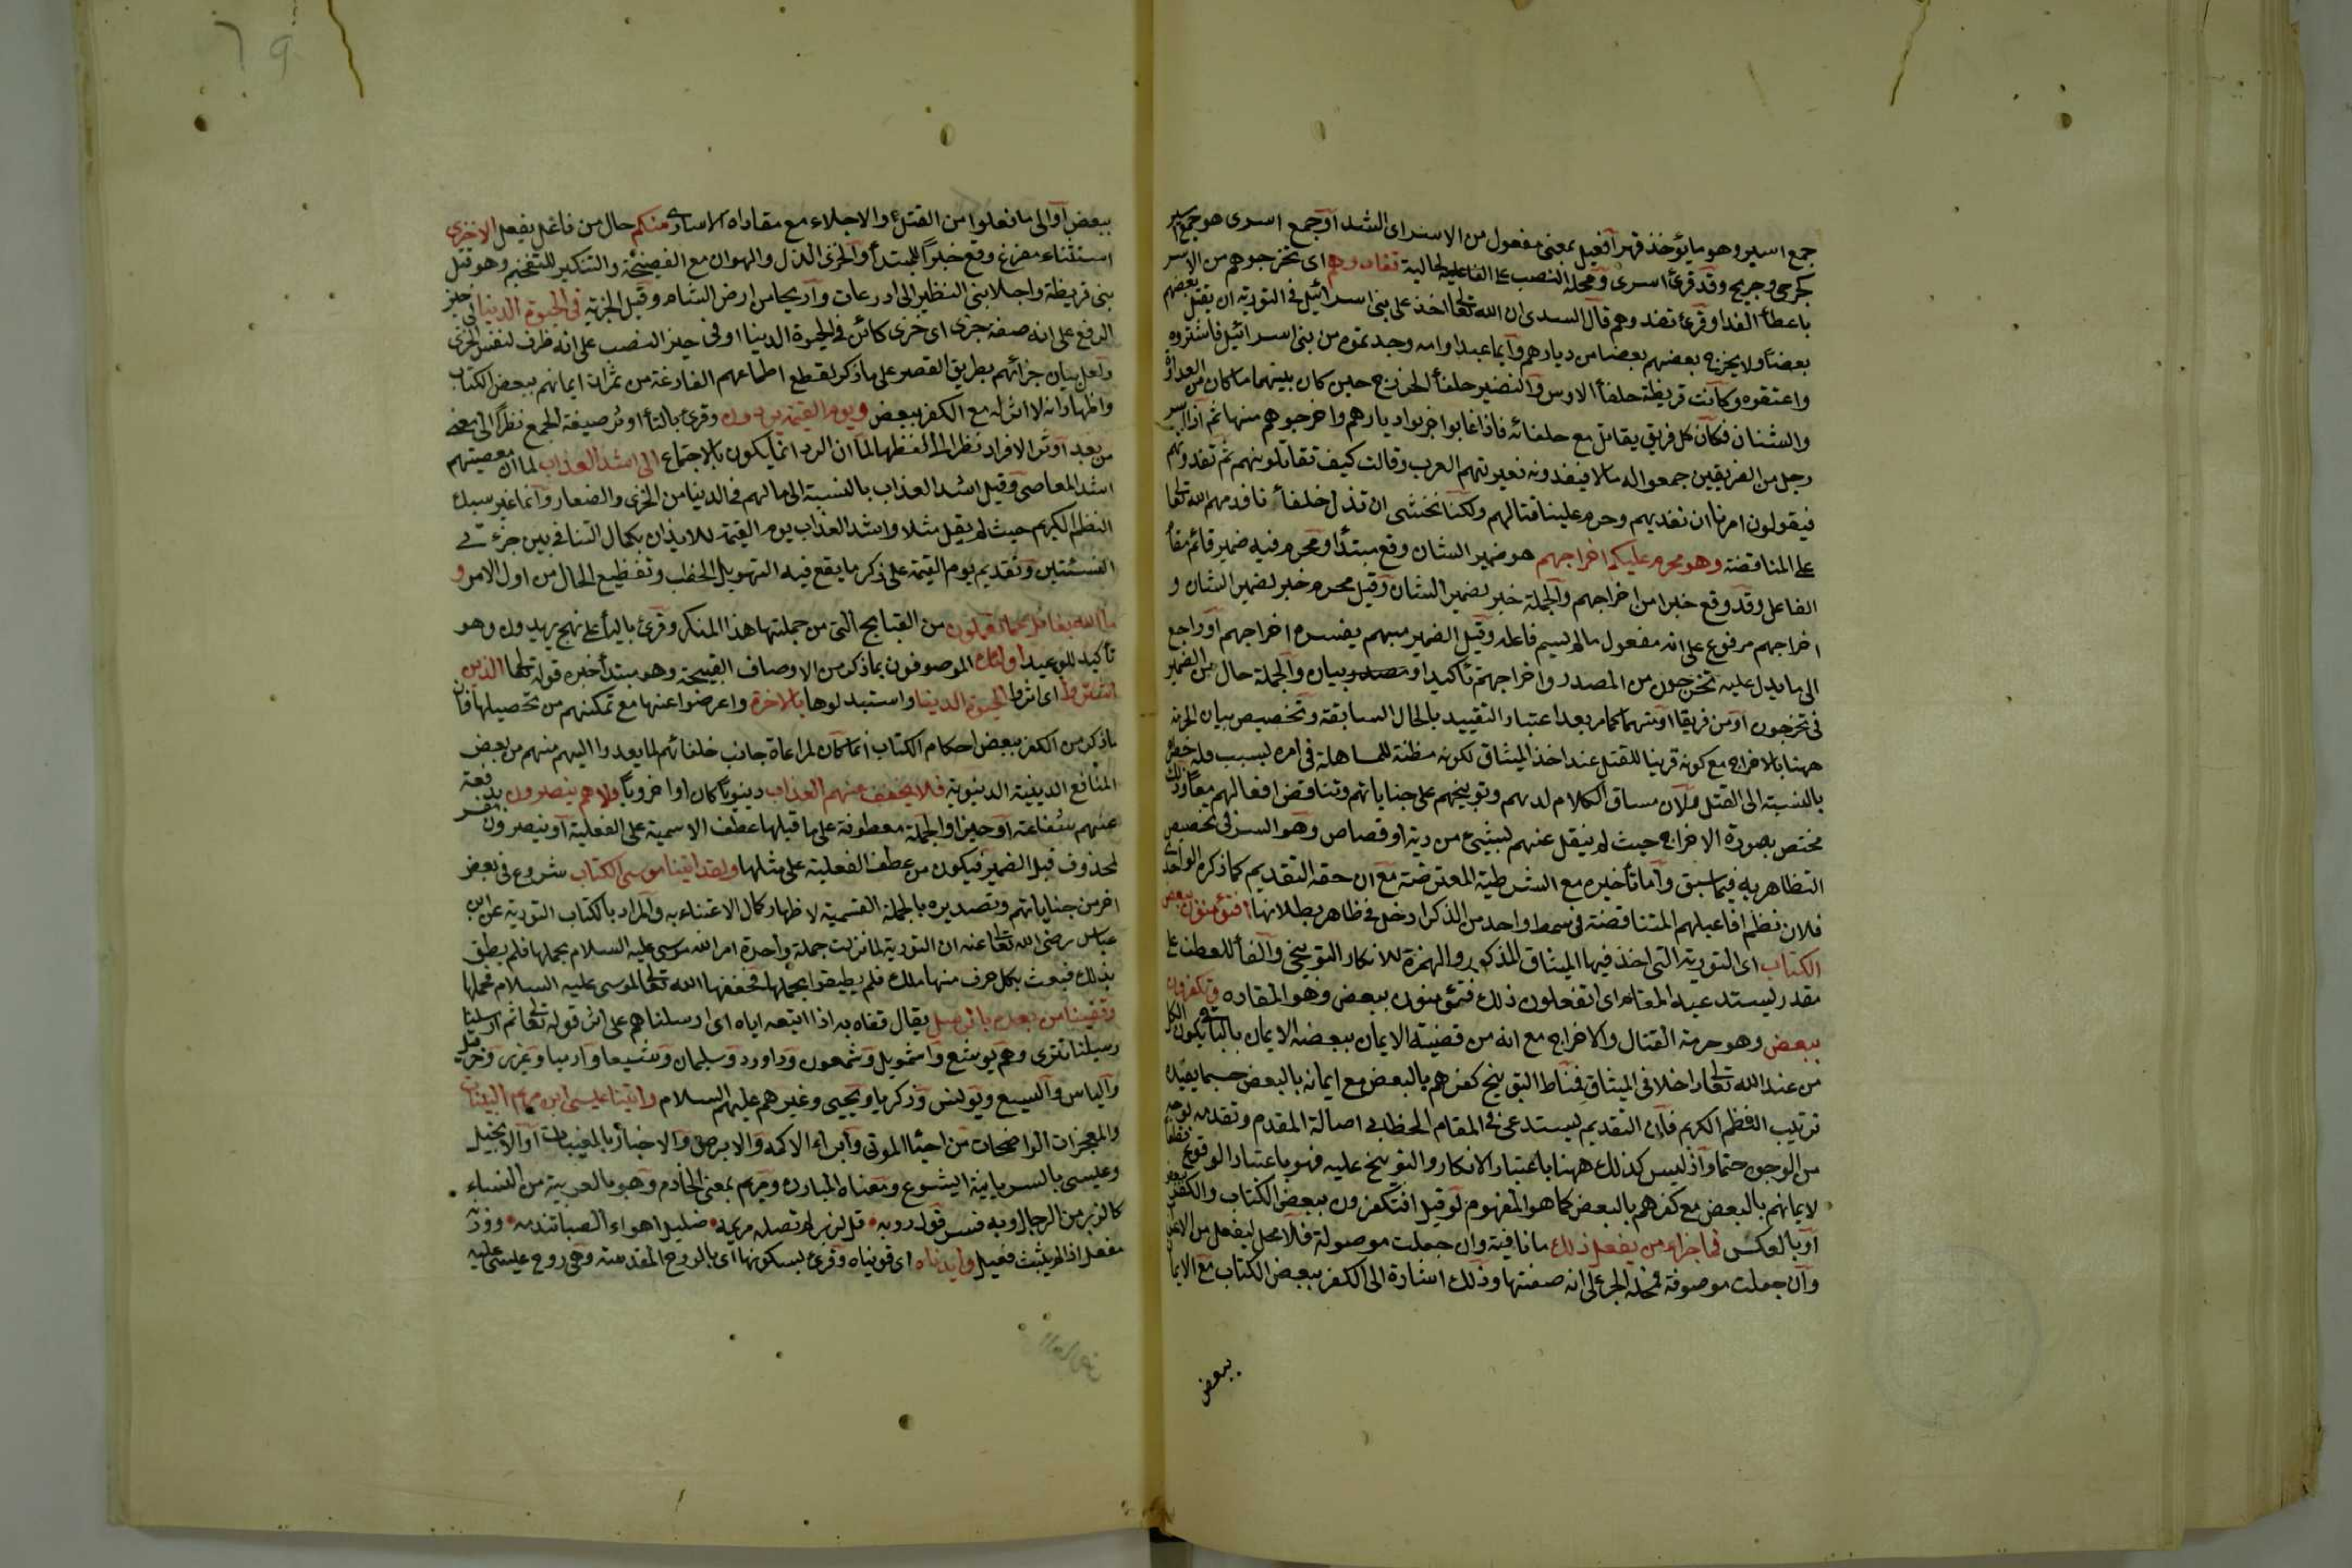 جمع اسير وهو ما يؤخذ قهرا فعيل بمعنى مفعول من الاسر اى الشد او جمع اسرى هو جمع اسير
كجرحى وجريح وقد قرئ اسرى ومحله النصب على الحالية تفادوهم اى تخرجوهم من الاسر
باعطاء الفدا وقرئ تفدوهم قال السدى ان الله تعالى اخذ على بنى اسرائيل فى التورية ان يقتل بعضهم
بعضا ولا يخرج بعضهم بعضا من ديارهم وايما عبد او امه وجدتموه من بنى اسرائيل فاشتروه
واعتقوه وكانت قريظة حلفأ الاوس والنضير حلفأ الخزرج حين كان بينهما ما كان من العداوة
والشنان فكان كل فريق يقاتل مع حلفائه فاذا غابوا خربوا ديارهم واخرجوهم منها ثم اذا اسر
رجل من الفريقين جمعوا له مالا فيفدونه فعيرتهم العرب وقالت كيف تقاتلونهم ثم تفدونهم
فيقولون امرنا ان نفديهم وحرم علينا قتالهم ولكنا نخشى ان تذل خلفأ نا فدمهم الله تعالى
على المناقضة وهو محرم عليكم اخراجهم هو ضمير الشان وقع مبتدأ ومحرم فيه ضمير قائم مقام
الفاعل وقد وقع خبرا من اخراجهم والجملة خبر لضمير الشان وقيل محرم خبر لضمير الشان و
اخراجهم مرفوع على انه مفعول ما لم يسم فاعله وقيل الضمير مبهم يفسره اخراجهم او راجع
الى ما يدل عليه تخرجون من المصدر واخراجهم تأكيد او بيان والجملة حال من الضمير
فى تخرجون او من فريقا او منهما كما مر بعد اعتبار التقييد بالحال السابقة وتخصيص بيان الحرمة
ههنا بالاخراج مع كونه قرينا للقتل عند اخذ الميثاق لكونه مظنة للمساهلة فى امره بسبب قلة خطره
بالنسبة الى القتل ولان مساق الكلام لذمهم وتوبيخهم على جناياتهم وتناقض افعالهم معا وذلك
مختص بصورة الاخراج حيث لم ينقل عنهم بشيئ من دية او قصاص وهو السر فى تخصيص
التظاهر به فيما سبق واما تأخيره مع الشرطية المعترضة مع ان حقه التقديم كما ذكره الواحدى
فلان نظم افاعيلهم المتناقضة فى سمط واحد من الذكر ادخل فى ظاهر بطلانها افتؤمنون ببعض
الكتاب اى التورية التى اخذ فيها الميثاق المذكور والهمزة للانكار التوبيخى والفأ للعطف على
مقدر يستدعيه المقام اى اتفعلون ذلك فتؤمنون ببعض وهو المفاده وتكفرون
ببعض وهو حرمة القتال والاخراج مع انه من قضية الايمان ببعضه الايمان بالباقى لكون الكل
من عند الله تعالى داخلا فى الميثاق فمناط التوبيخ كفرهم بالبعض مع ايمانه بالبعض حسبما يفيده
ترتيب النظم الكريم فان التقديم يستدعى فى المقام الخطابى اصالة المقدم وتقدمه بوجه
من الوجوه حتما واذ ليس كذلك ههنا باعتبار الانكار والتوبيخ عليه فهو باعتبار الوقوع
لايمانهم بالبعض مع كفرهم بالبعض كما هو المفهوم لو قيل افتكفرون ببعض الكتاب
او بالعكس فما جزاء من يفعل ذلك ما نافية وان جعلت موصولة فلا محل ليفعل من الاعراب
وان جعلت موصوفة فمحله الجر على انه صفتها وذلك اشارة الى الكفر ببعض الكتاب مع الايما
ببعض
69
ببعض او الى ما فعلوا من القتل والاجلاء مع مفاداة الاسارى منكم حال من فاعل يفعل الاخزى
استثناء مفرغ وقع خبرا للمبتدأ والخزى الذل والهوان مع الفضيحة والتنكير للتفخيم وهو قتل
بنى قريظة واجلا بنى النظير الى اذرعات واريحا من ارض الشام وقيل الجزية فى الحيوة الدنيا فى حيز
الرفع على انه صفة خزى اى خزى كائن فى الحيوة الدنيا او فى حيز النصب على انه ظرف لنفس الخزى
ولعل بيان جزائهم بطريق القصر على ما ذكر لقطع اطماعهم الفارغة من ثمرات ايمانهم ببعض الكتاب
واظهار انه لا اثر له مع الكفر ببعض ويوم القيمة يردون وقرئ بالتأ اوثر صيغة الجمع نظرا الى معنى
من بعد اوثر الافراد نظرا الى لفظها لما ان الرد انما يكون بالاجتماع الى اشد العذاب لما ان معصيتهم
اشد المعاصى وقيل اشد العذاب بالنسبة الى مالهم فى الدنيا من الخزى والصغار وانما غير سبك
النظم الكريم حيث لم يقل مثلا واشد العذاب يوم القيمة للايذان بكمال التنافى بين جزئ تى
النشئتين وتقديم يوم القيمة على ذكر ما يقع فيه لتهويل الخطب وتفظيع الحال من اول الامر و
ما الله بغافل عما تعملون من القبايح التى من جملتها هذا المنكر وقرئ باليأ على نهج يردون وهو
تأكيد للوعيد اولئك الموصوفون بما ذكر من الاوصاف القبيحة وهو مبتدأ خبره قوله تعالى الذين
اشتروا اى اثروا الحيوة الدنيا واستبدلوها بالاخرة واعرضوا عنها مع تمكنهم من تحصيلها فان
ما ذكر من الكفر ببعض احكام الكتاب انما كان لمراعاة جانب خلفائهم لما يعود اليهم منهم من بعض
المنافع الدينية الدنيوية فلا يخفف عنهم العذاب دنيويا كان او اخرويا ولا هم ينصرون بدفعه
عنهم شفاعة او جبرا والجملة معطوفة على ما قبلها عطف الاسمية على الفعلية او ينصرون مفسر
لمحذوف قبل الضمير فيكون من عطف الفعلية على مثلها ولقد اتينا موسى الكتاب شروع فى بعض
اخر من جناياتهم وتصديره بالجملة القسمية لاظهار كمال الاعتناء به والمراد بالكتاب التورية عن ابن
عباس رضى الله تعالى عنه ان التورية لما نزلت جملة واحدة امر الله موسى عليه السلام بحملها فلم يطق
بذلك فبعث بكل حرف منها ملك فلم يطيقوا بحملها فخففها الله تعالى لموسى عليه السلام فحملها
وقفينا من بعده بالرسل يقال قفاه به اذا اتبعه اياه اى ارسلناهم على اثره قوله تعالى ثم ارسلنا
رسلنا تترى وهم يوشع واشمويل وشمعون وداود وسليمان وشعيا وارميا وعزير وحزقيل
والياس واليسع ويونس وزكريا ويحيى وغيرهم عليهم السلام واتينا عيسى ابن مريم البينات
والمعجزات الواضحات من احيئا الموتى وابراء الاكمه والابرص والاخبار بالمغيبات او الانجيل
وعيسى بالسريانية ايشوع ومعناه المبارك ومريم بمعنى الخادم وهو بالعربية من النساء
كالزير من الرجال وبه فسر قول روبه قل لزير لم تصله مريمه ضليل اهواء الصبا تندمه ووزنه
مفعل اذ لم يثبت فعيل وايدناه اى قويناه وقرئ بسكونها اى بالروح المقدسة وهى روح عيسى عليه